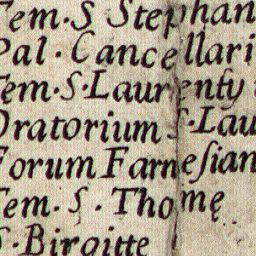 Tem. S Stephan
Pal. Cancellari
Tem. S. Laurenty
Oratorium S. Lau
Forum Farneſian
Tem. S. Thomę
S. Birgitte